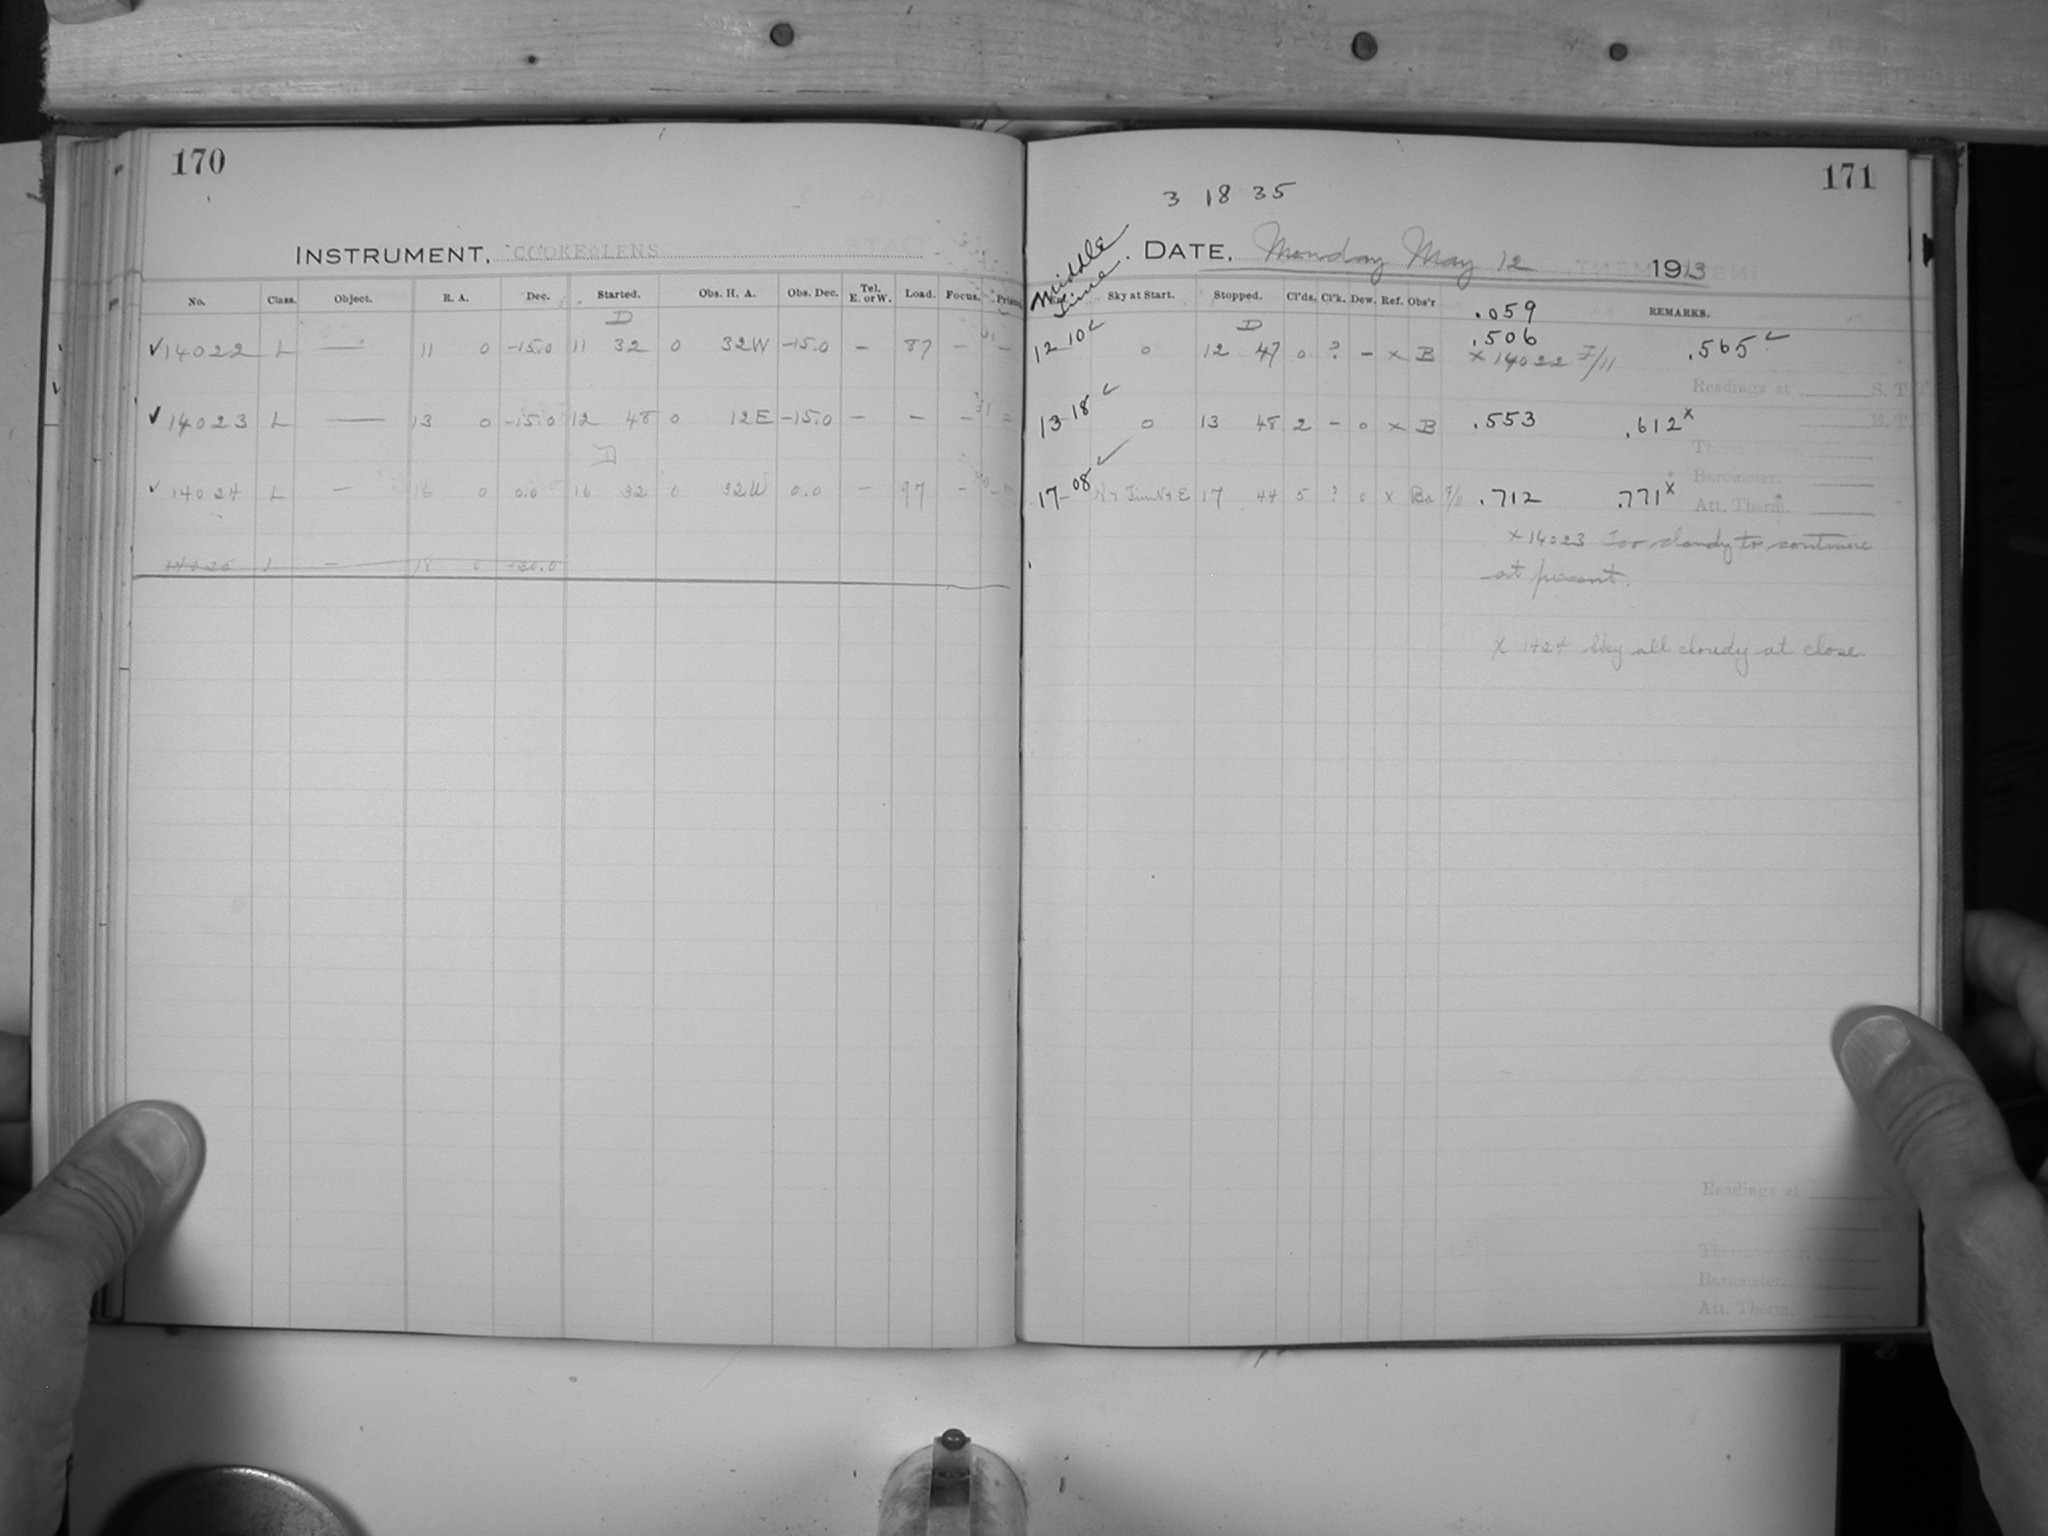 170
INSTRUMENT. COOKE LENS
No. Class. Object. R. A. Dec. Started. Obs. H. A. Obs. Dec. Tel. E. or W. Load. Focus.
D
✓14022 L — 11 0 -15.0 11 32 0 32W -15.0 — 87 — —
✓ 14023 L — 13 0 -15.0 12 48 0 12E -15.0 — — —
D
✓ 14024 L — 16 0 0.0 16 32 0 32W 0.0 — 97 —
14025 L — 18 0
171
3 18 35
Middle Time. DATE, Monday May 12 1913
Sky at Start. Stopped. Cl'ds. Cl'k. Dew. Ref. Obs'r REMARKS.
.059
D .506
12 10 ✓ 0 12 47 0 ? — x B x 14022 F/11 .565 ✓
Readings at S. T.
13-18 ✓ 0 13 48 2 — 0 x B .553 .612 x
M. T.
Thermometer.
Barometer.
17-08 ✓ 17 44 5 ? 0 x Ba .712 .771 x
Att. Therm.
x 14023 Too cloudy to continue
at present.
x 1424 Sky all cloudy at close.
Readings at
Thermometer.
Barometer.
Att. Therm.